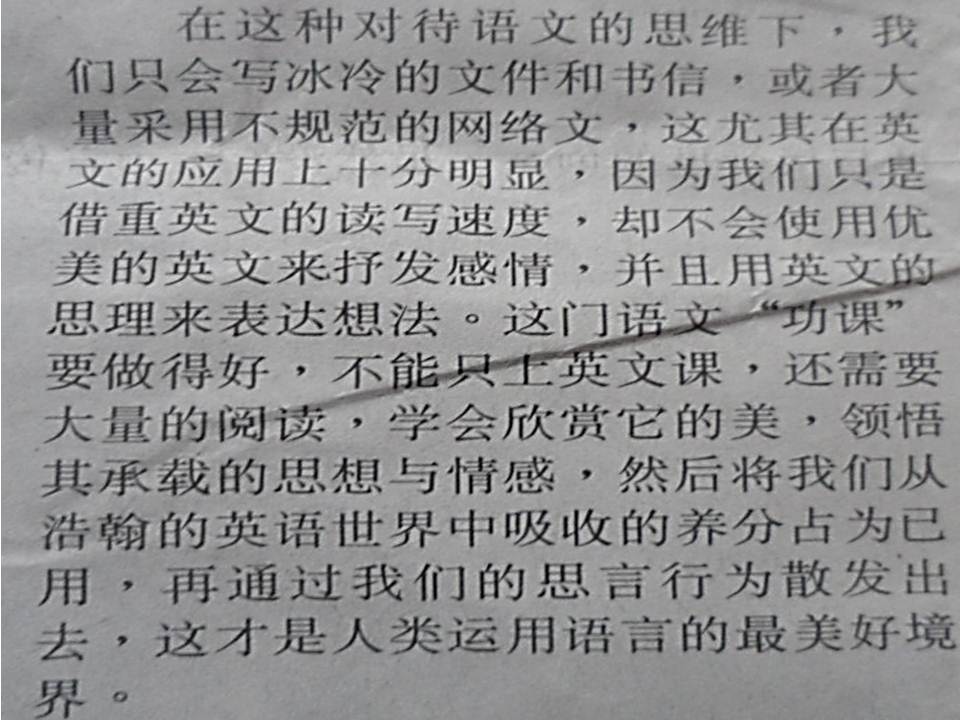 在这种对待语文的思维下，我
们只会写冰冷的文件和书信，或者大
量采用不规范的网络文，这尤其在英
文的应用上十分明显，因为我们只是
借重英文的读写速度，却不会使用优
美的英文来抒发感情，并且用英文的
思理来表达想法。这门语文“功课”
要做得好，不能只上英文课，还需要
大量的阅读，学会欣赏它的美，领悟
其承载的思想与情感，然后将我们从
浩翰的英语世界中吸收的养分占为已
用，再通过我们的思言行为散发出
去，这才是人类运用语言的最美好境
界。